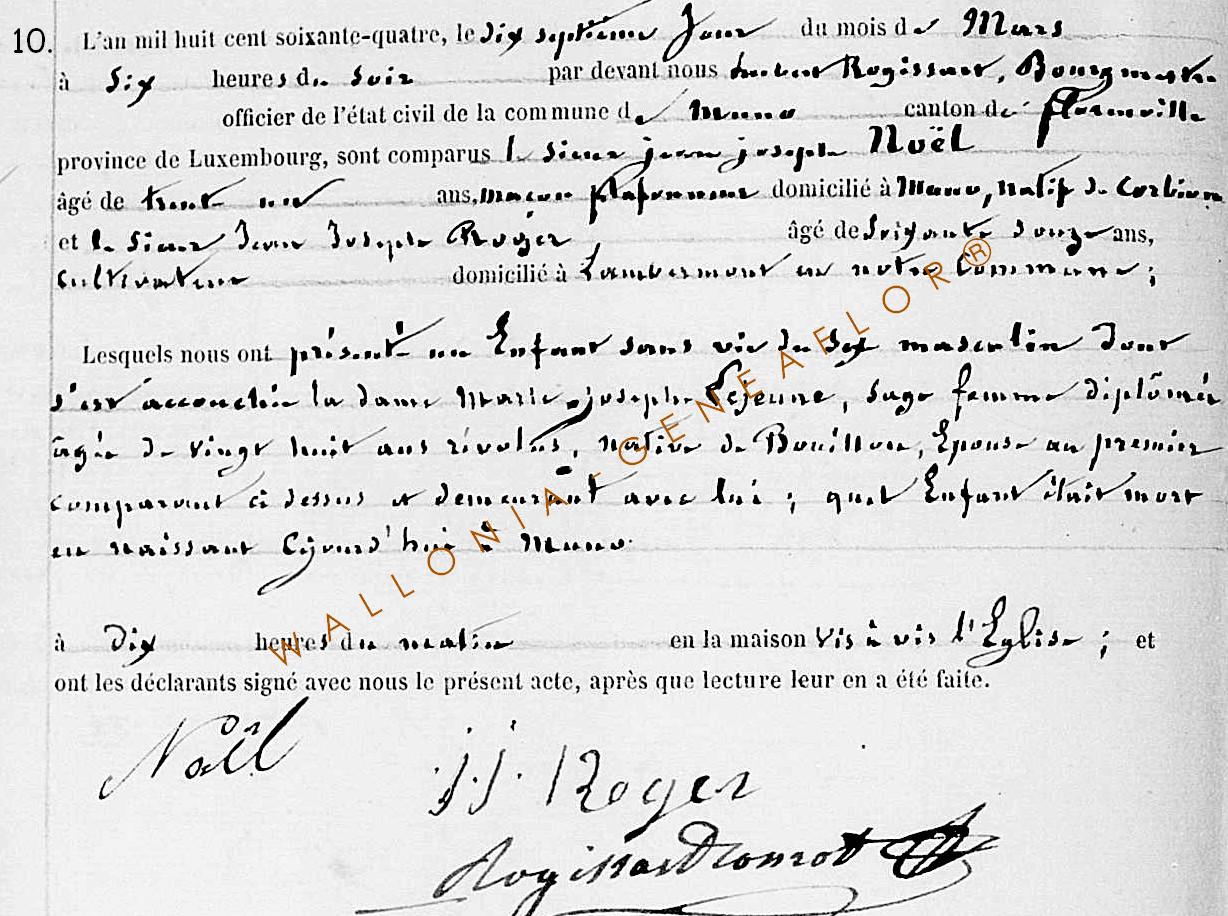 10. L'an mil huit cent soixante-quatre, le dix septième Jour du mois de Mars
à Six heures du Soir par devant nous hubert Rogissart, Bourgmestre
officier de l'état civil de la commune de Muno canton de florenville
province de Luxembourg, sont comparus le sieur jean joseph Noël
âgé de trente ans, maçon plafonneur domicilié à Muno, natif de Corbion
et le Sieur Jean Joseph Roger, âgé de Soixante douze ans,
Cultivateur domicilié à Lambermont en notre Commune ;
Lesquels nous ont présenté un Enfant sans vie du Sex masculin Dont
s'est accouchée la dame Marie joseph Lejeune, Sage femme diplômée
âgée de vingt huit ans révolus, native de Bouillon, Epouse au premier
comparant ci dessus et demeurant avec lui ; quel Enfant était mort
en naissant Cejourd'hui à Muno.
à Dix heures du matin en la maison vis à vis l'Eglise ; et
ont les déclarants signé avec nous le présent acte, après que lecture leur en a été faite.
Noël
J.J. Roger
Rogissart
WALLONIA - GENEAFLOR®